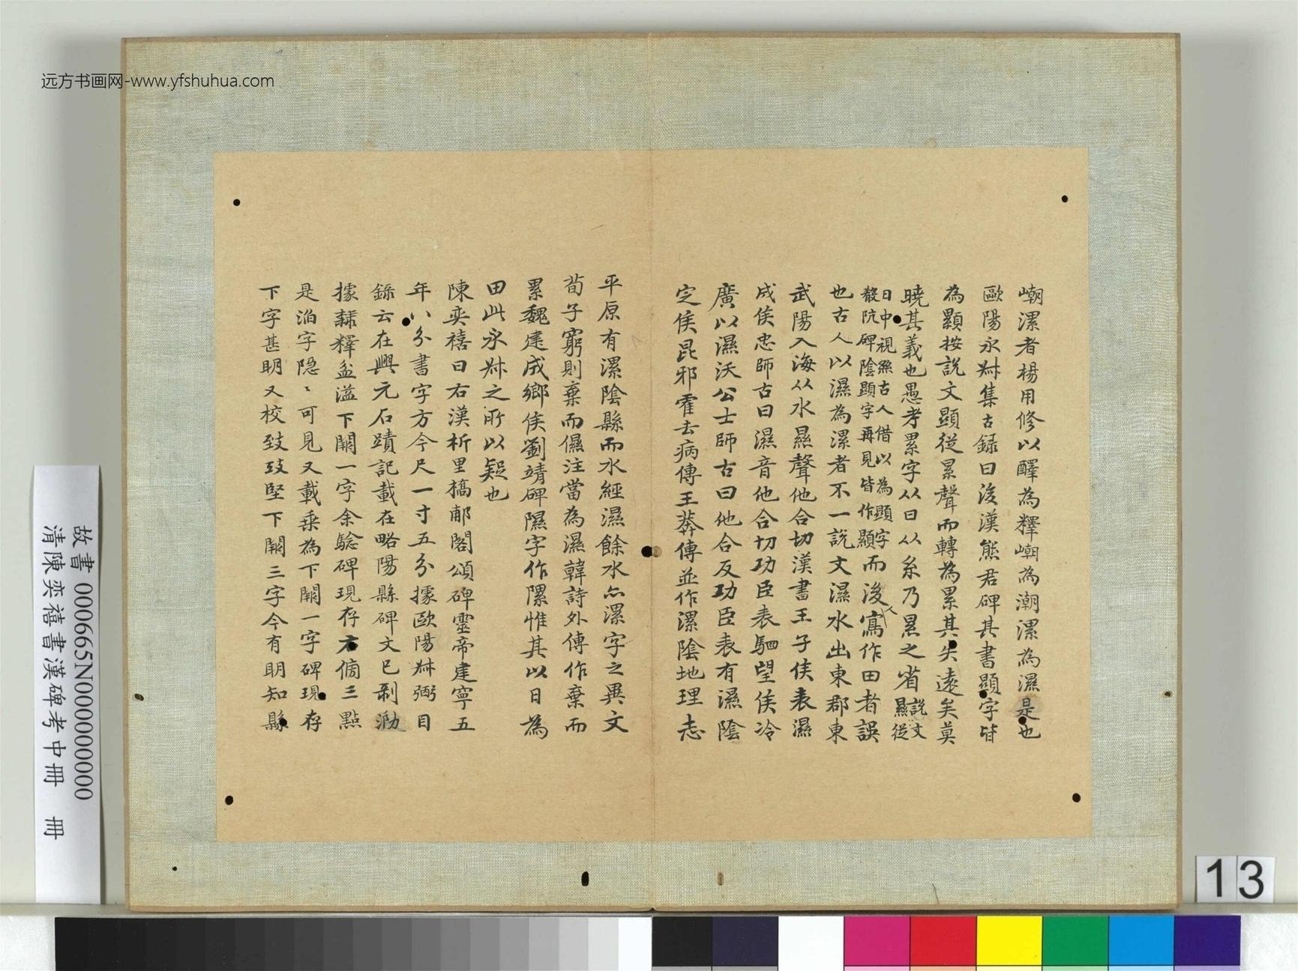 嶱漯者楊用修以醳為釋嶱為潮漯為濕是也
歐陽永叔集古錄曰後漢熊君碑其書顯字皆
為顯按說文顯從㬎聲而轉為累其失遠矣莫
曉其義也愚考累字从日从糸乃㬎之省說文㬎從
日中視絲古人借以為顯字散阬碑陰顯字再見皆作顯而後人寫作田者誤
也古人以濕為漯者不一說文濕水出東郡東
武陽入海从水㬎聲他合切漢書王子侯表濕
成侯忠師古曰濕音他合切功臣表駟望侯冷
廣以濕沃公士師古曰他合反功臣表有濕陰
定侯昆邪霍去病傳王莽傳並作漯陰地理志
平原有漯陰縣而水經濕餘水亦漯字之異文
荀子窮則棄而儑注當為濕韓詩外傳作棄而
累魏建成鄉侯劉靖碑隰字作隰惟其以日為
田此永叔之所以疑也
陳奕禧曰右漢析里橋郙閣頌碑靈帝建寧五
年八分書字方今尺一寸五分據歐陽叔弼目
錄云在興元石蹟記載在略陽縣碑文已剝泐
據隸釋盆溢下闕一字余驗碑現存氵傍三點
是洎字隱〻可見又載乗為下闕一字碑現存
下字甚明又校致攻堅下闕三字今有明知縣
远方书画网-www.yfshuhua.com
故書000665N000000000
清陳奕禧書漢碑考中冊 冊
13